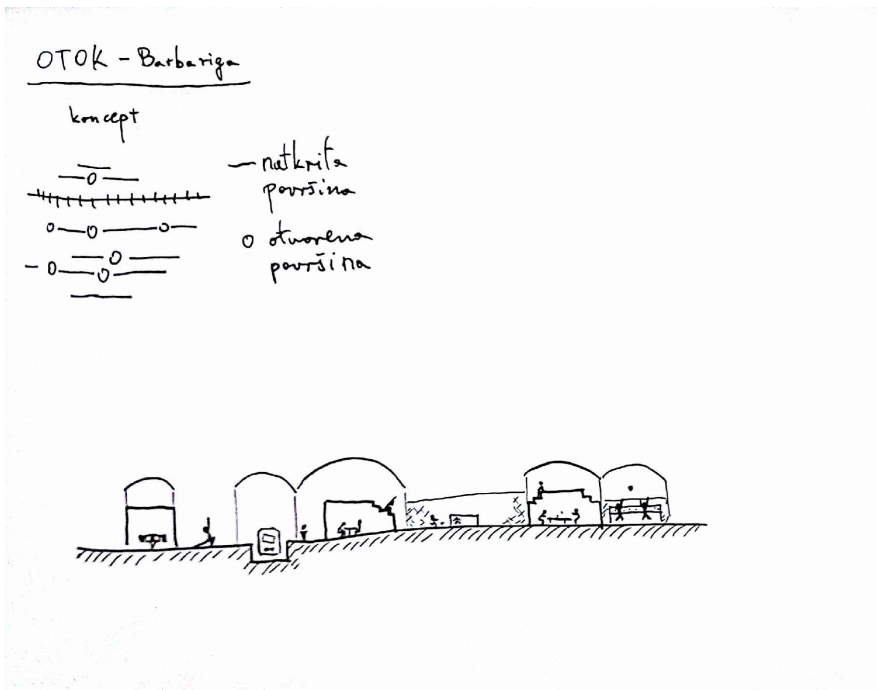 OTOK - Barbariga
koncept
— natkrita
površina
o otvorena
površina